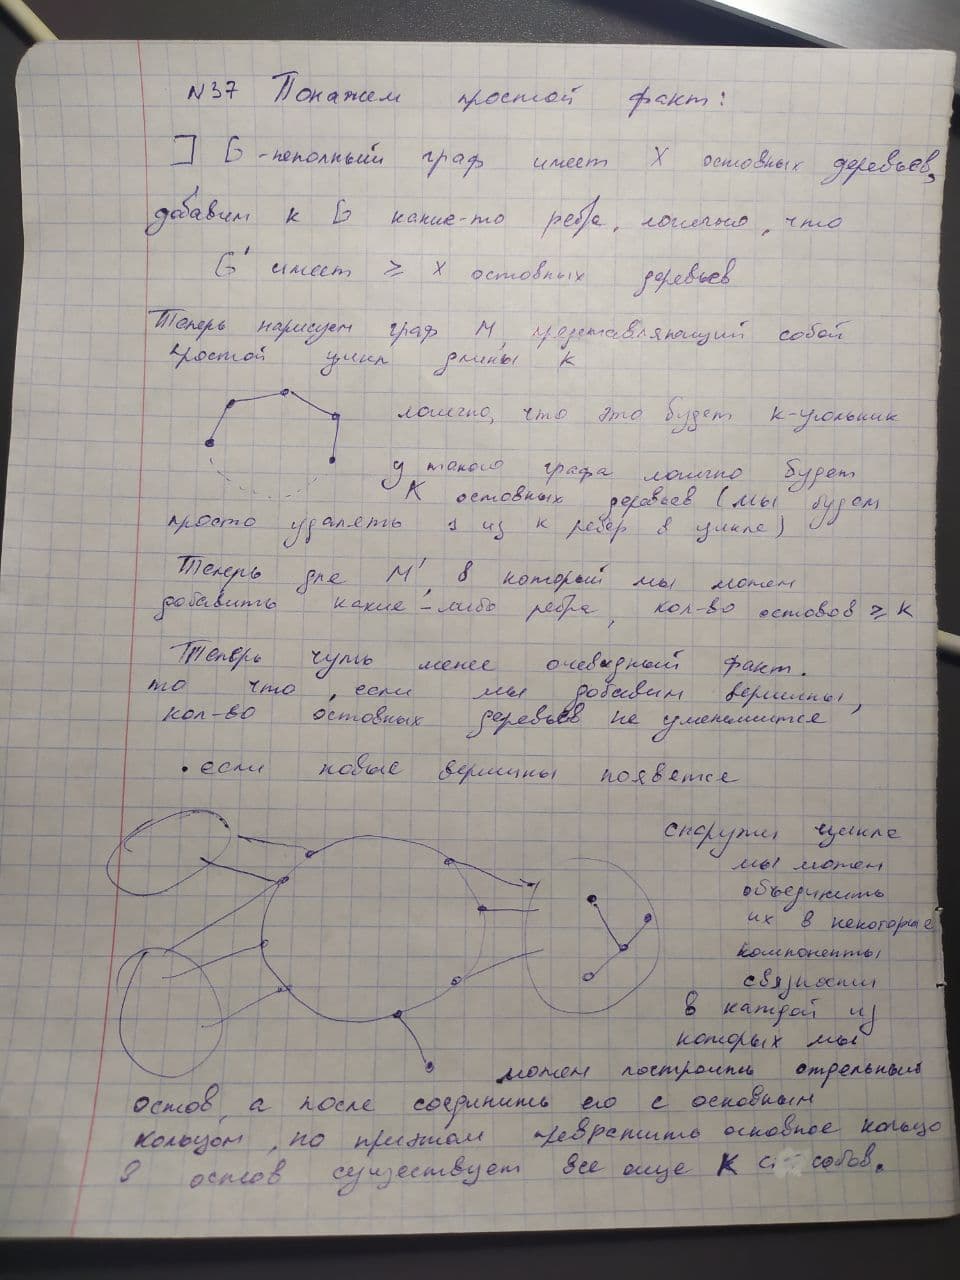 N37 Покажем простой факт:
] G - неполный граф имеет X остовных деревьев,
добавим к G какие-то ребра, логично, что
G' имеет ≥ X остовных деревьев
Теперь нарисуем граф M, представляющий собой
простой цикл длины K
логично, что это будет K-угольник
у такого графа логично будет
K остовных деревьев (мы будем
просто удалять 1 из K ребер в цикле)
Теперь для M', в который мы можем
добавить какие-либо ребра, кол-во остовов ≥ K
Теперь чуть менее очевидный факт.
то что, если мы добавим вершины,
кол-во остовных деревьев не уменьшится
• если новые вершины появятся
снаружи цикла
мы можем
объединить
их в некоторые
компоненты
связности
в каждой из
которых мы
можем построить отдельный
остов, а после соединить его с основным
кольцом, но при этом превратить основное кольцо
в остов существует все еще K способов.